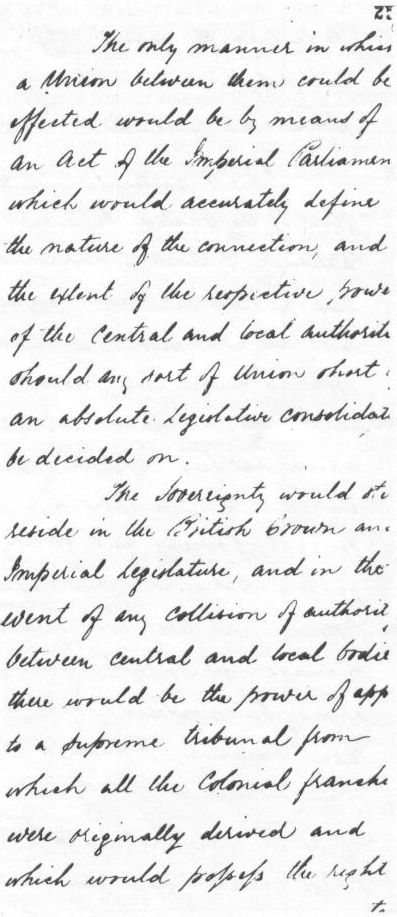 The only manner in whic
a Union between them could be
effected would be by means of
an Act of the Imperial Parliamen
which would accurately define
the nature of the connection, and
the extent of the respective powe
of the Central and local authoriti
should any sort of Union short
an absolute Legislative consolidat
be decided on.
The Sovereignty would sti
reside in the British Crown an
Imperial Legislature, and in the
event of any Collision of authorit
between central and local bodie
there would be the power of app
to a supreme tribunal from
which all the Colonial franchi
were originally derived and
which would possess the right
t